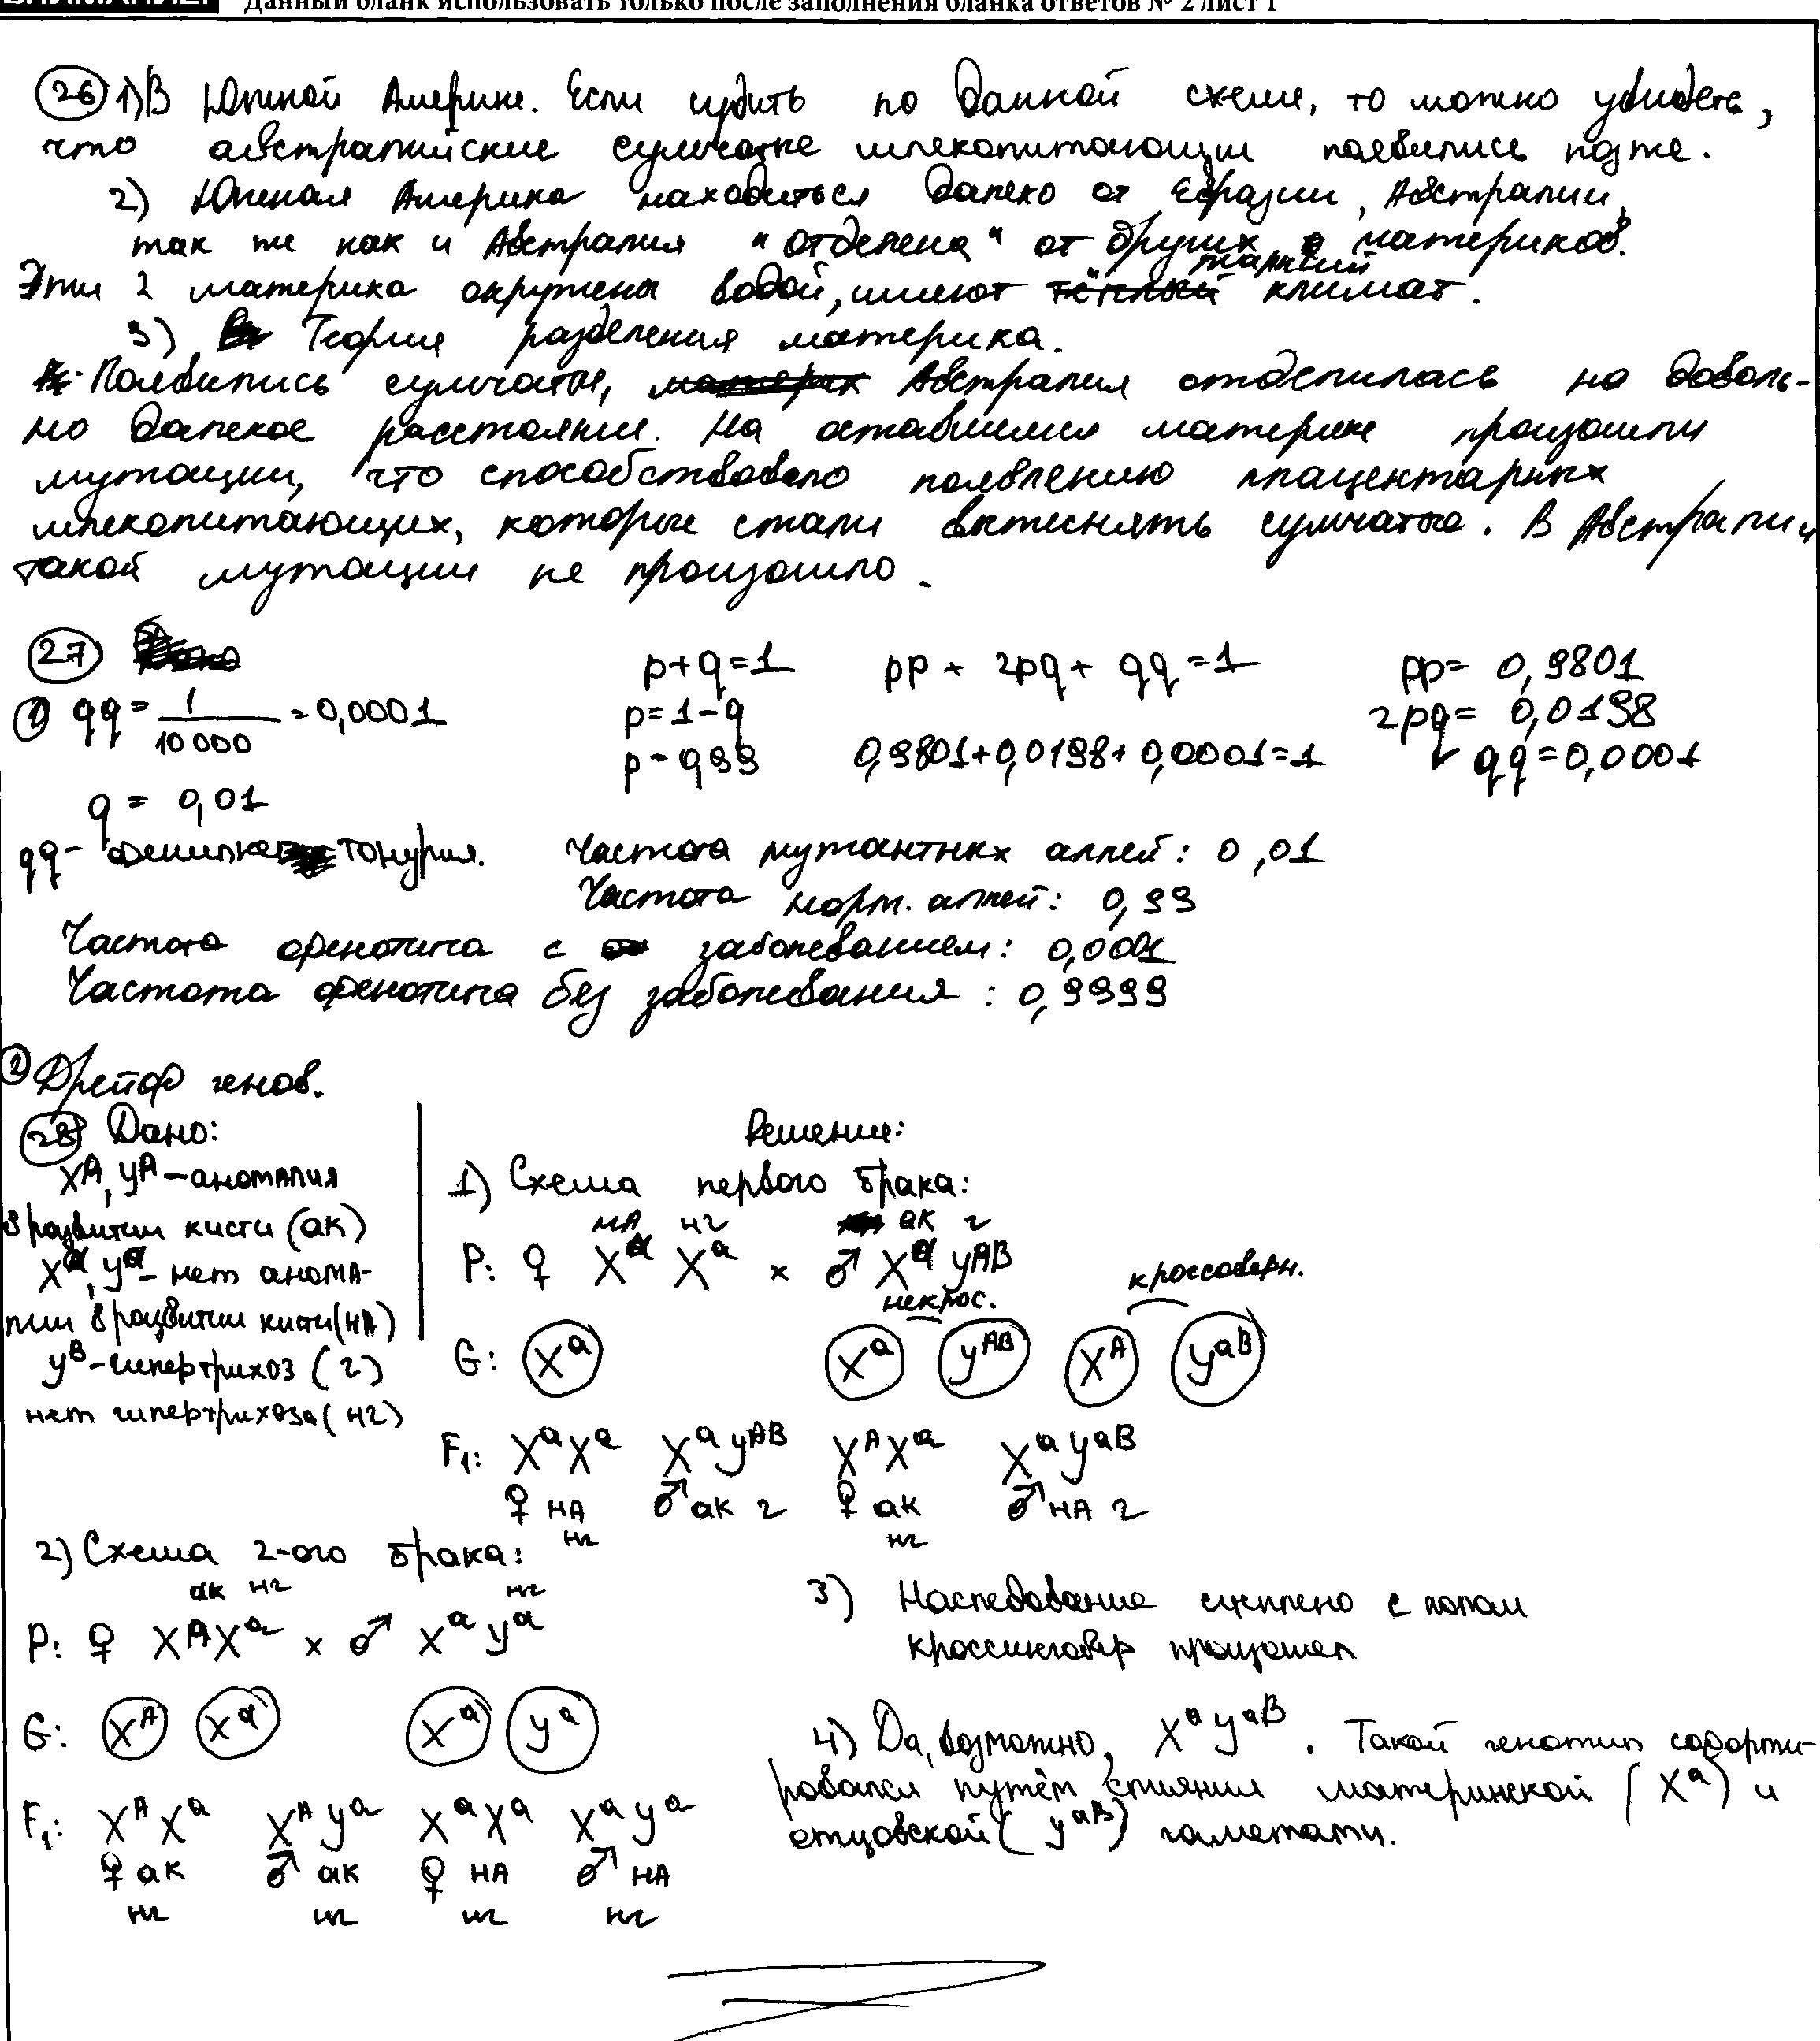 Данный бланк использовать только после заполнения бланка ответов № 2 лист 1
26 1) В Южной Америке. Если судить по данной схеме, то можно увидеть,
что австралийские сумчатые млекопитающие появились позже.
2) Южная Америка находиться далеко от Евразии, Австралии,
так же как и Австралия "отделена" от других материков.
Эти 2 материка окружены водой, имеют жаркий климат.
3) Теория разделения материка.
Появились сумчатые, Австралия отделилась на доволь-
но далекое расстояние. На оставшимся материке произошли
мутации, что способствовало появлению плацентарных
млекопитающих, которые стали вытеснять сумчатые. В Австралии
такой мутации не произошло.
27
1 qq = 1/10 000 = 0,0001 p+q=1 pp + 2pq + qq = 1 pp = 0,9801
p=1-q 2pq = 0,0198
p=0,99 0,9801+0,0198+0,0001=1 qq=0,0001
q = 0,01
qq - фенилкетонурия. Частота мутантных аллей: 0,01
Частота норм. аллей: 0,99
Частота фенотипа с заболеванием: 0,0001
Частота фенотипа без заболевания: 0,9999
2 Дрейф генов.
28 Дано:
X^A, y^A - аномалия
в развитии кисти (ак)
X^a, y^a - нет анома-
лии в развитии кисти (на)
y^B - гипертрихоз (г)
нет гипертрихоза (нг)
Решение:
1) Схема первого брака:
на нг ак г
P: ♀ X^a X^a × ♂ X^a y^AB
некрос. кроссоверн.
G: X^a X^a y^AB X^A y^aB
F₁: X^a X^a X^a y^AB X^A X^a X^a y^aB
♀ на ♂ ак г ♀ ак ♂ на г
нг нг
2) Схема 2-ого брака:
ак нг нг
P: ♀ X^A X^a × ♂ X^a y^a
G: X^A X^a X^a y^a
F₁: X^A X^a X^A y^a X^a X^a X^a y^a
♀ ак ♂ ак ♀ на ♂ на
нг нг нг нг
3) Наследование сцеплено с полом
кроссинговер произошел
4) Да, возможно, X^a y^aB. Такой генотип сформи-
ровался путём слияния материнской (X^a) и
отцовской (y^aB) гаметами.